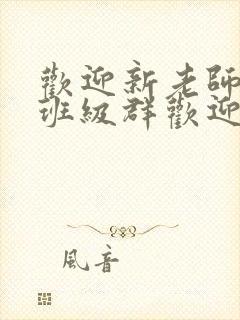 歡迎新老師
班級群歡迎
風音